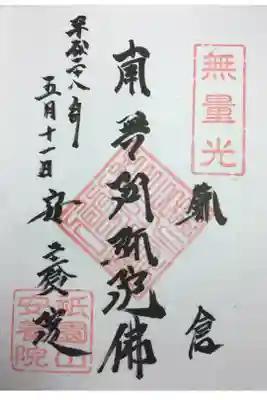 無量光
鎌倉
南無阿弥陀佛
平成二十八年
五月十一日
安養院
祇園山
安養院